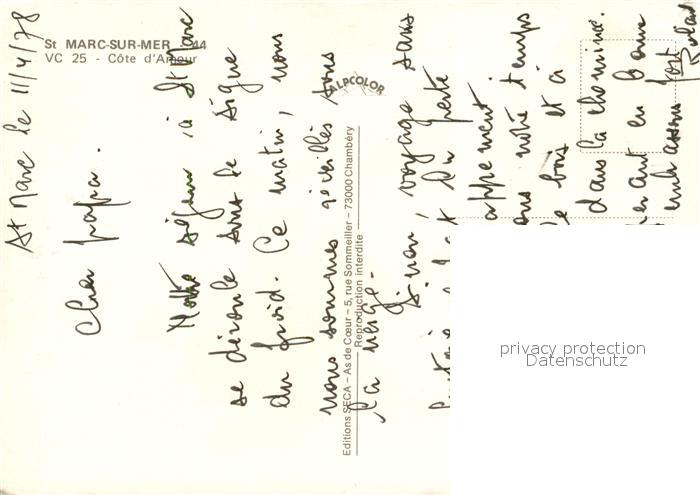 St MARC-SUR-MER - 44
VC 25 - Côte d'Amour
ALPCOLOR
Editions SECA - As de Cœur - 5, rue Sommeiller - 73000 Chambéry
Reproduction interdite
St Marc le 11/4/78
Cher papa.
Notre séjour à St Marc
se déroule sous le signe
du froid. Ce matin, nous
nous sommes réveillés sous
la neige.
Sinon, voyage sans
perte
appement.
notre temps
bois et à
dans la cheminée.
en bonne
fort
Roland
privacy protection
Datenschutz